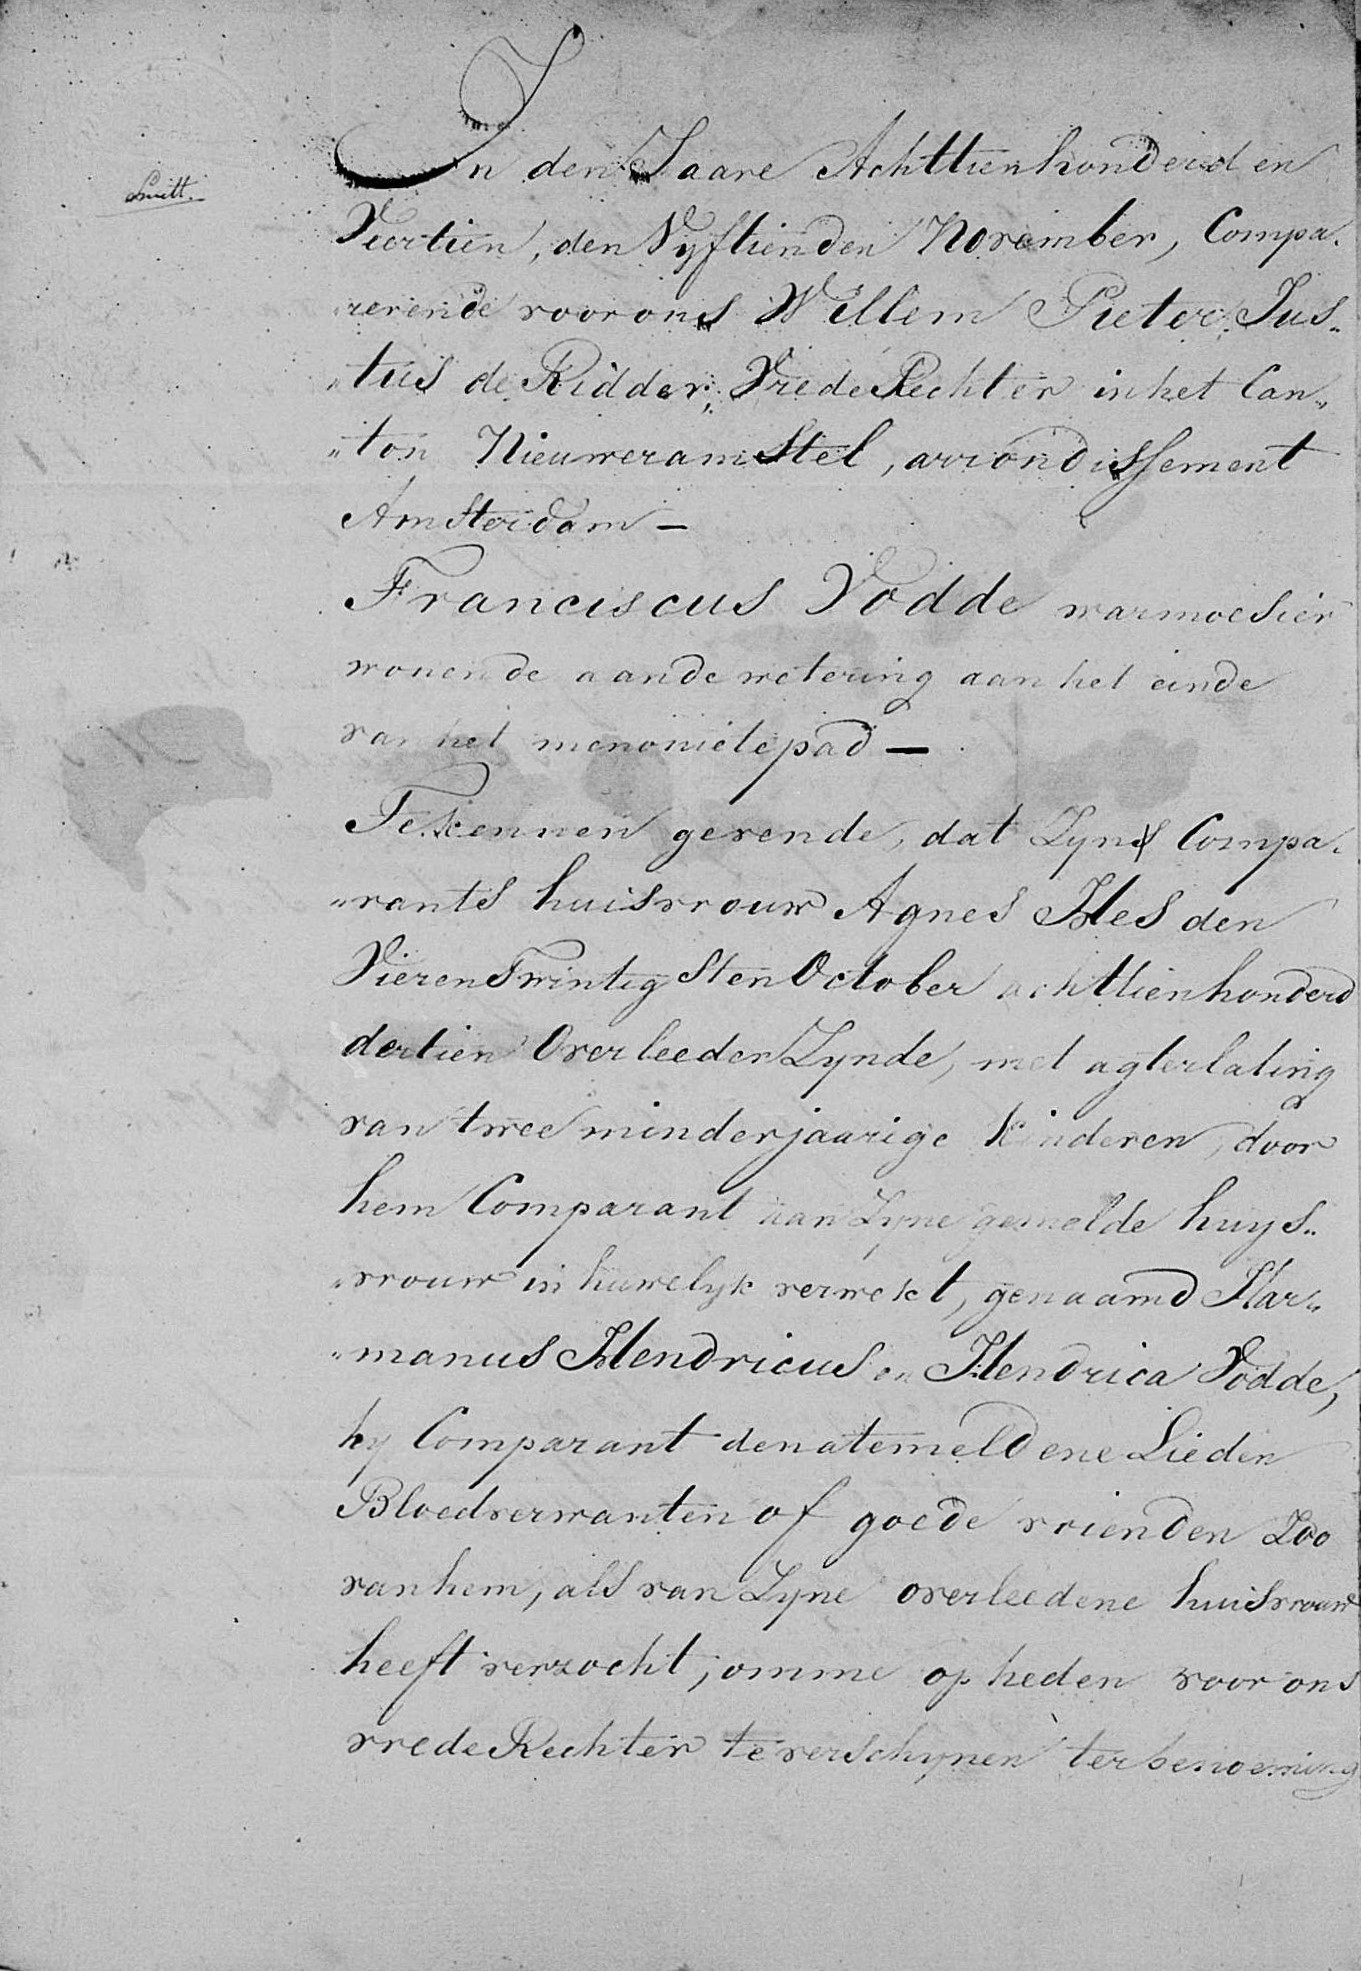 In den Jaare Achttienhonderd en
Veertien, den Vyftienden November, Compa-
rerende voor ons Willem Pieter Jus„
„tus de Ridder, Vrede Rechter in het Can„
„ton Nieuweramstel, arrondissement
Amsterdam —
Franciscus Vodde warmoesier
wonende aan de wetering aan het einde
van het menonietepad —
Te kennen gevende, dat Zyns Compa-
„rants huisvrouw Agnes Hes den
Vieren Twintigsten October achttienhonderd
dertien Overleeden Zynde, met agterlating
van twee minderjaarige kinderen, door
hem Comparant aan Zyne gemelde huys„
„vrouw in huwelyk verwekt, genaamd Har„
„manus Hendricus en Hendrica Vodde,
hy Comparant denatemeldene Lieden
Bloedverwanten of goede vrienden Zoo
van hem, als van Zyne overleedene huisvrouw
heeft verzocht, omme op heden voor ons
vrede Rechter te verschynen ter benoeming